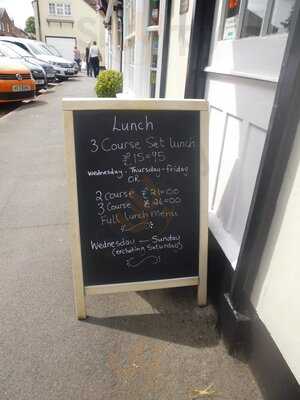 Lunch
3 Course Set lunch
£15=95
Wednesday - Thursday - friday
OR
2 course £21=00
3 Course £26=00
Full Lunch Menu
Wednesday — Sunday
(excluding Saturday)